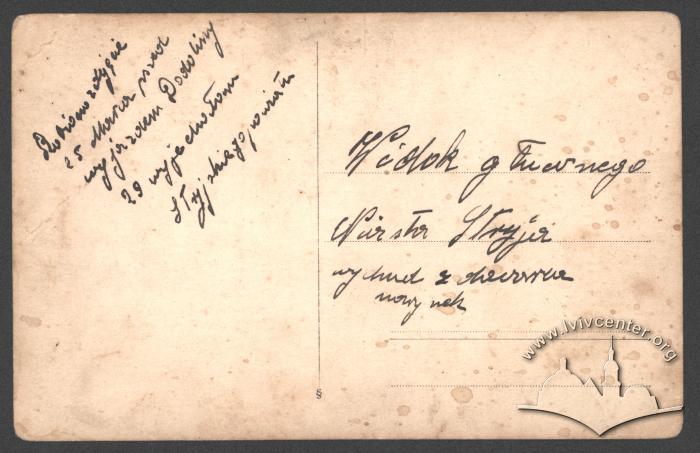 Robiono zdjęcie
25 Marca przed
wyjazdem Podoliny
29 wyjechałam
Stryjskiego powiatu
Widok głuwnego
Miasta Stryja
wychud z dworca
nowy rek
§
www.lvivcenter.org